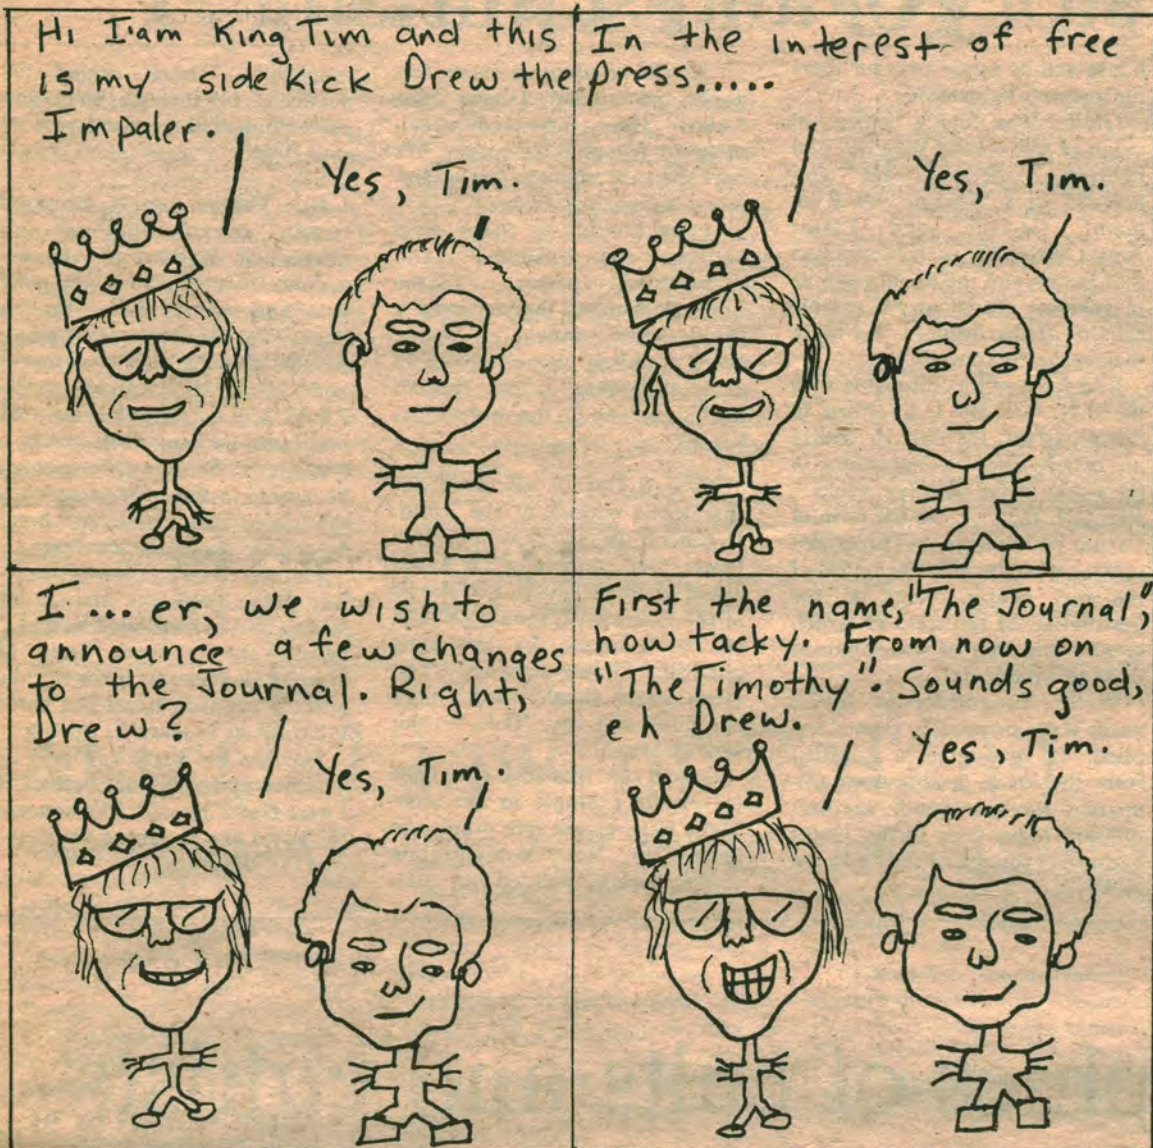 Hi I'am King Tim and this
is my side kick Drew the
Impaler.
Yes, Tim.
In the interest of free
press.....
Yes, Tim.
I ... er, we wish to
announce a few changes
to the Journal. Right,
Drew?
Yes, Tim.
First the name, "The Journal",
how tacky. From now on
"The Timothy". Sounds good,
eh Drew.
Yes, Tim.